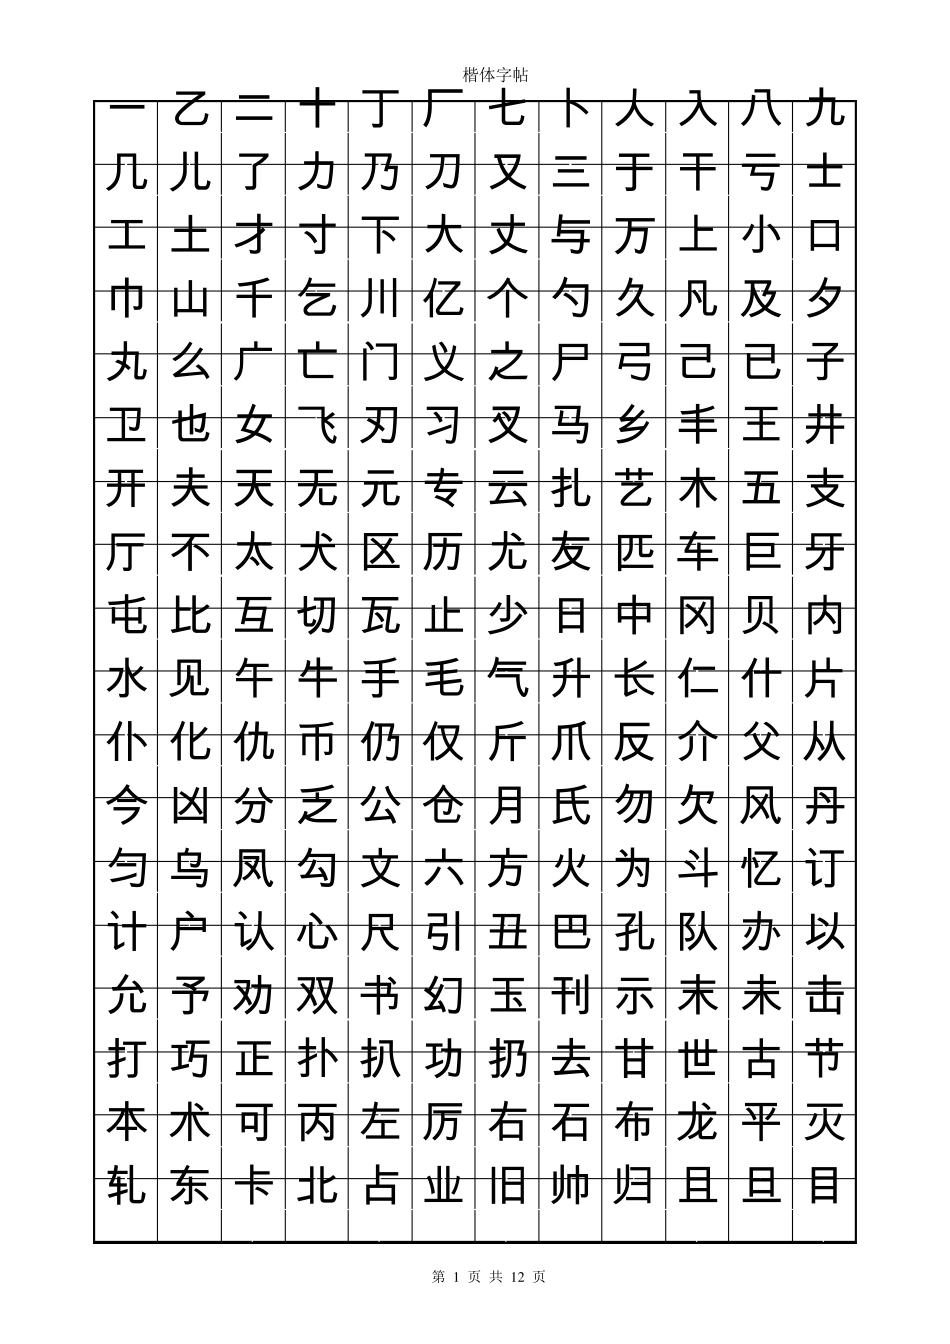 楷体字帖
一 乙 二 十 丁 厂 七 卜 人 入 八 九
几 儿 了 力 乃 刀 又 三 于 干 亏 士
工 土 才 寸 下 大 丈 与 万 上 小 口
巾 山 千 乞 川 亿 个 勺 久 凡 及 夕
丸 么 广 亡 门 义 之 尸 弓 己 已 子
卫 也 女 飞 刃 习 叉 马 乡 丰 王 井
开 夫 天 无 元 专 云 扎 艺 木 五 支
厅 不 太 犬 区 历 尤 友 匹 车 巨 牙
屯 比 互 切 瓦 止 少 日 中 冈 贝 内
水 见 午 牛 手 毛 气 升 长 仁 什 片
仆 化 仇 币 仍 仅 斤 爪 反 介 父 从
今 凶 分 乏 公 仓 月 氏 勿 欠 风 丹
匀 乌 凤 勾 文 六 方 火 为 斗 忆 订
计 户 认 心 尺 引 丑 巴 孔 队 办 以
允 予 劝 双 书 幻 玉 刊 示 末 未 击
打 巧 正 扑 扒 功 扔 去 甘 世 古 节
本 术 可 丙 左 厉 右 石 布 龙 平 灭
轧 东 卡 北 占 业 旧 帅 归 且 旦 目
第 1 页 共 12 页